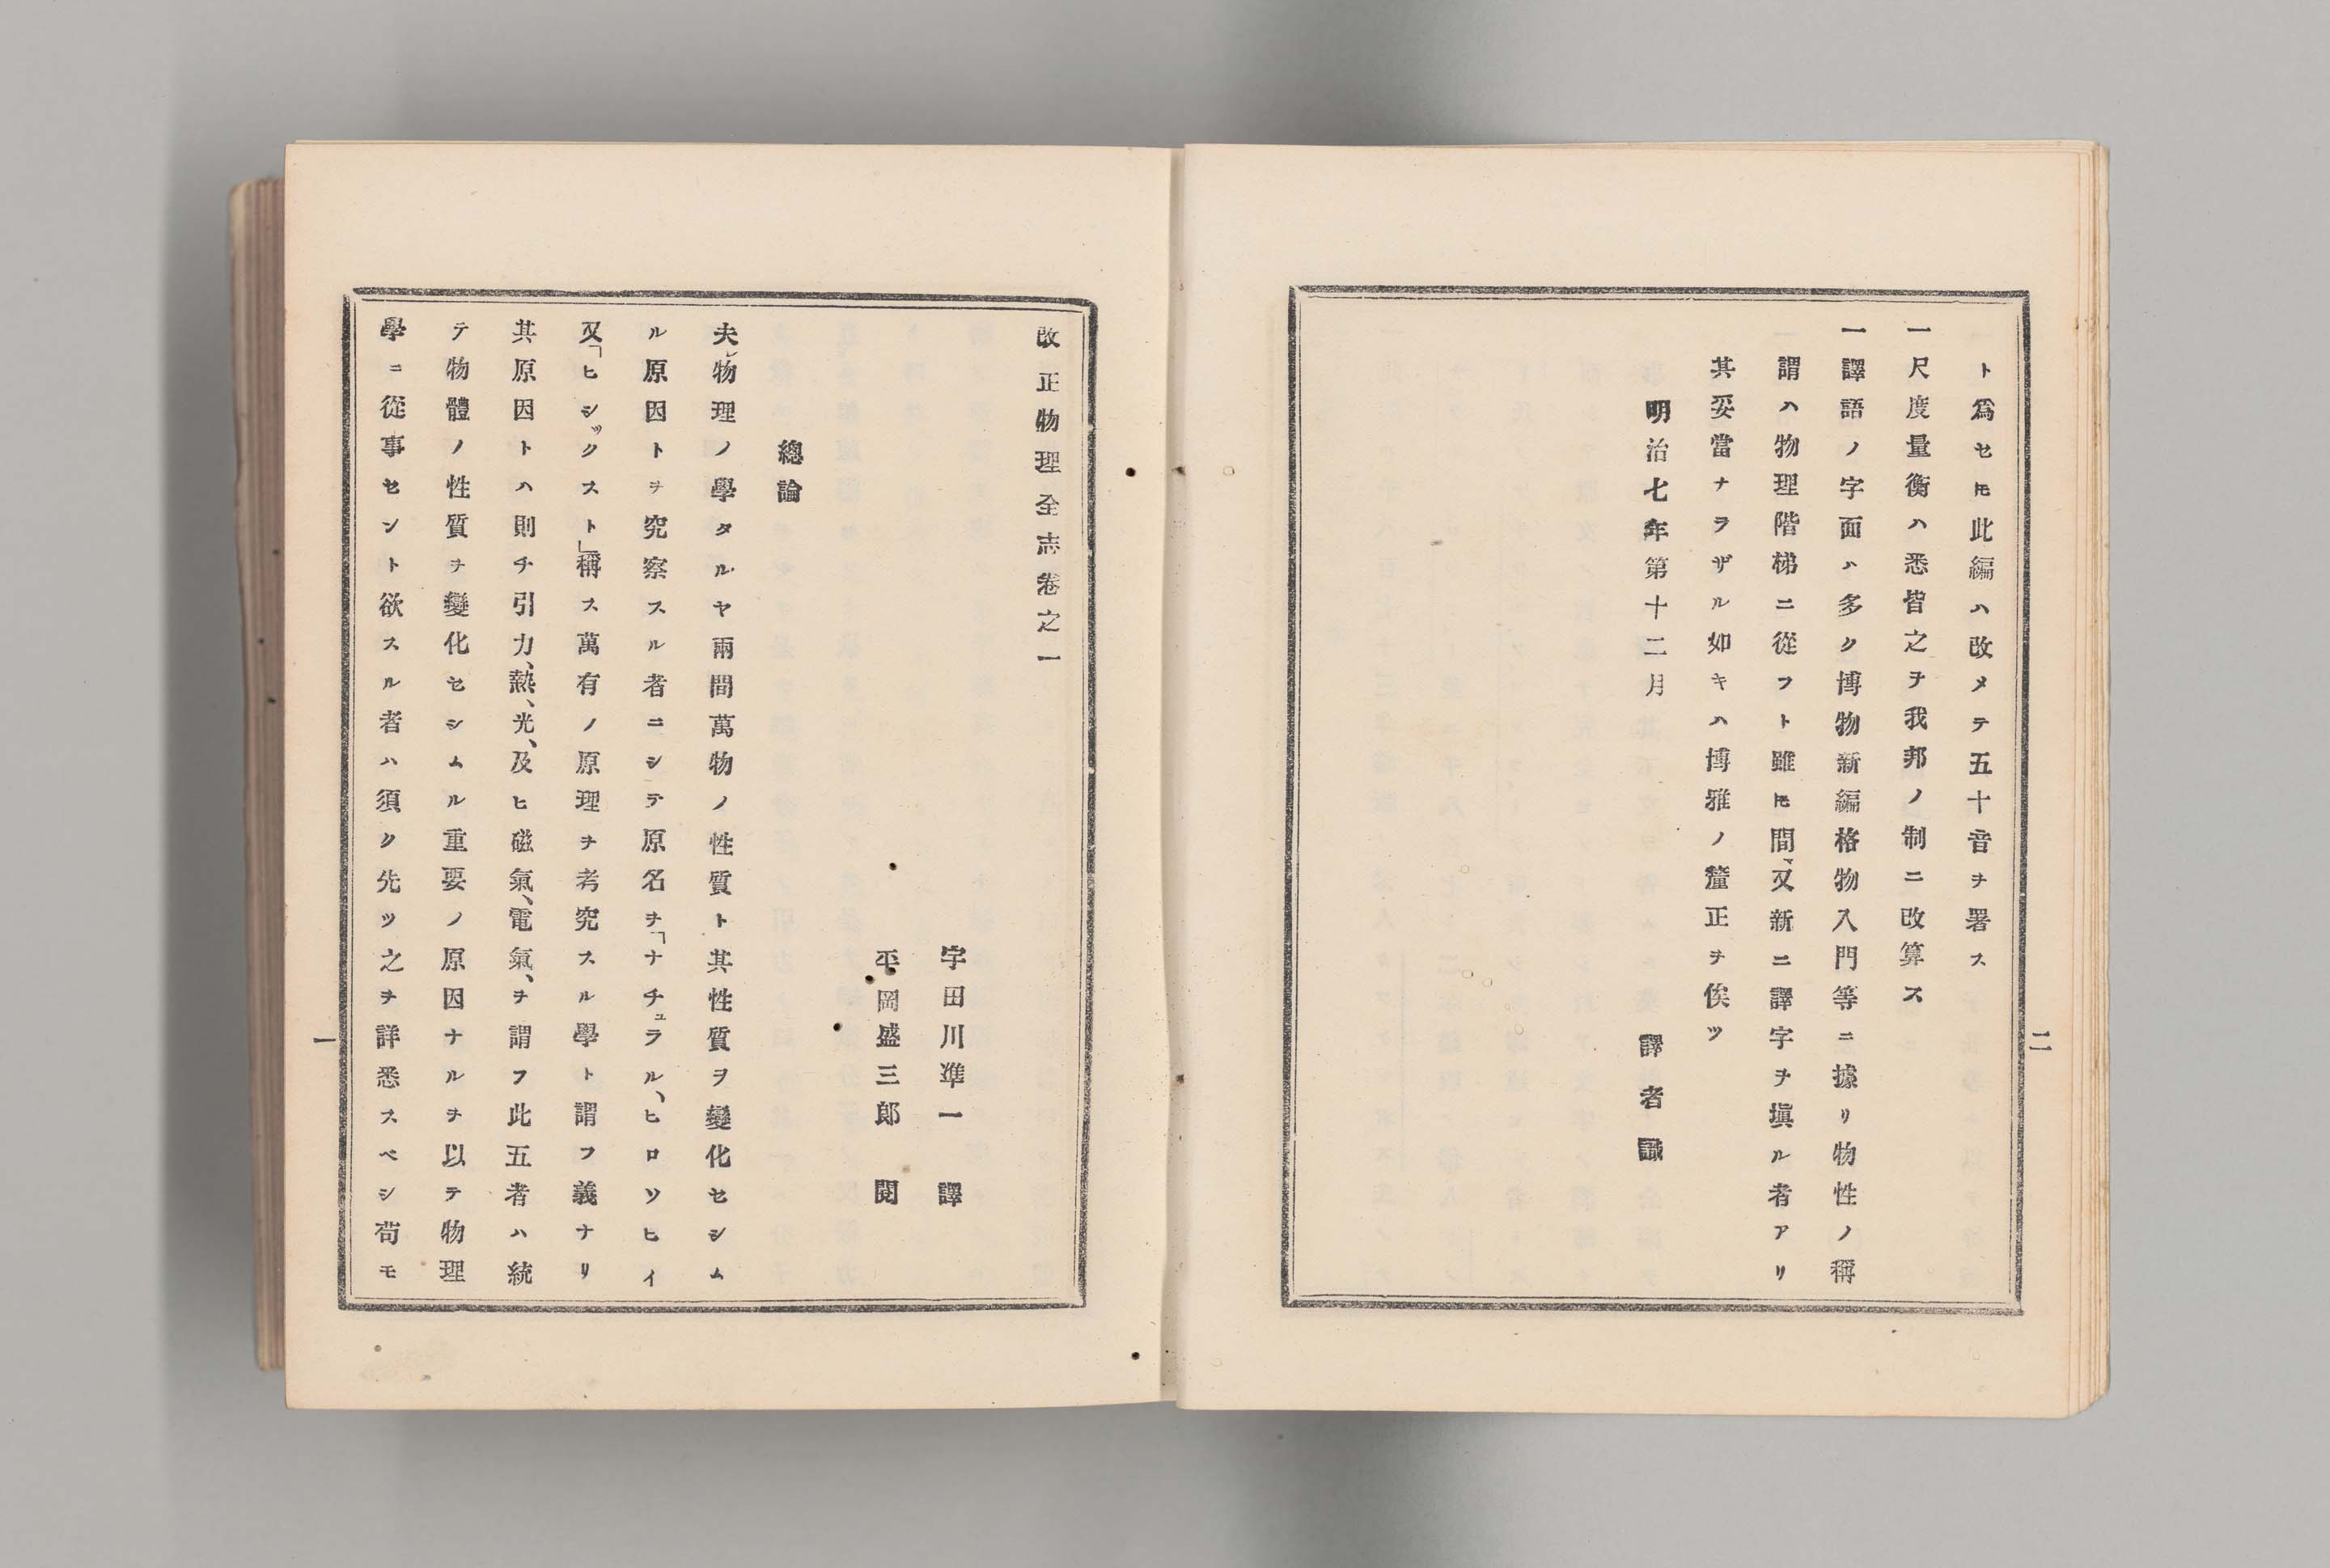 ト爲セ𪜈此編ハ改メテ五十音ヲ署ス
一尺度量衡ハ悉皆之ヲ我邦ノ制ニ改算ス
一譯語ノ字面ハ多ク博物新編格物入門等ニ據リ物性ノ稱
謂ハ物理階梯ニ從フト雖𪜈間、又新ニ譯字ヲ塡ル者アリ
其妥當ナラザル如キハ博雅ノ釐正ヲ俟ツ
明治七年第十二月
譯者識
二
改正物理全志卷之一
宇田川準一 譯
平岡盛三郎 閱
總論
夫レ物理ノ學タルヤ兩間萬物ノ性質ト其性質ヲ變化セシム
ル原因トヲ究察スル者ニシテ原名ヲ「ナチュラル、ヒロソヒイ
又「ヒシックスト」稱ス萬有ノ原理ヲ考究スル學ト謂フ義ナリ
其原因トハ則チ引力、熱、光、及ヒ磁氣、電氣、ヲ謂フ此五者ハ統
テ物體ノ性質ヲ變化セシムル重要ノ原因ナルヲ以テ物理
學ニ從事セント欲スル者ハ須ク先ツ之ヲ詳悉スベシ苟モ
一